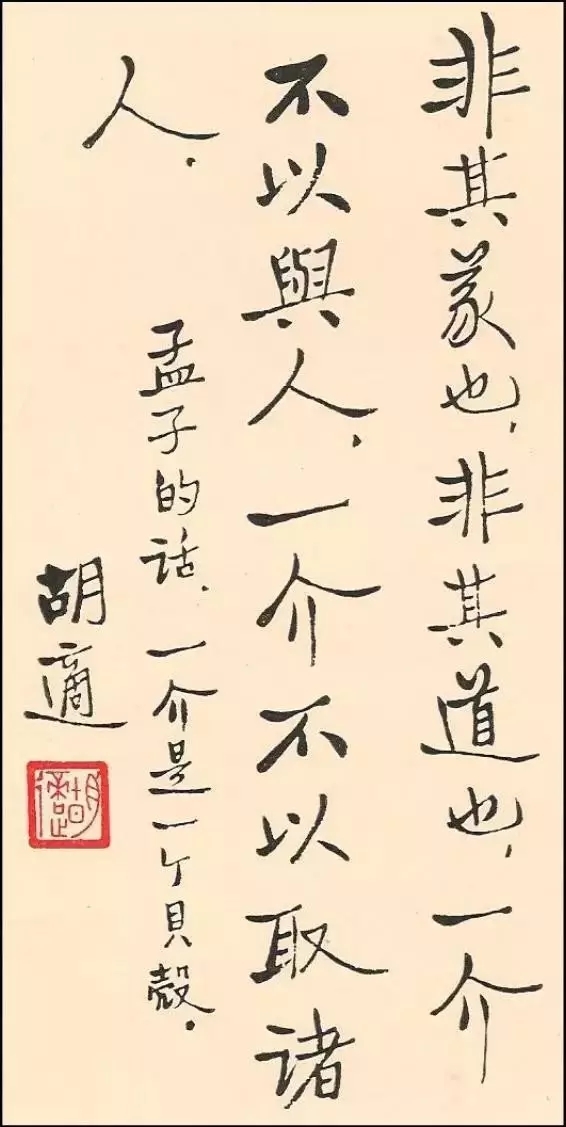 非其義也，非其道也，一介
不以與人，一介不以取诸
人．
孟子的话，一介是一个貝殼．
胡適
胡適